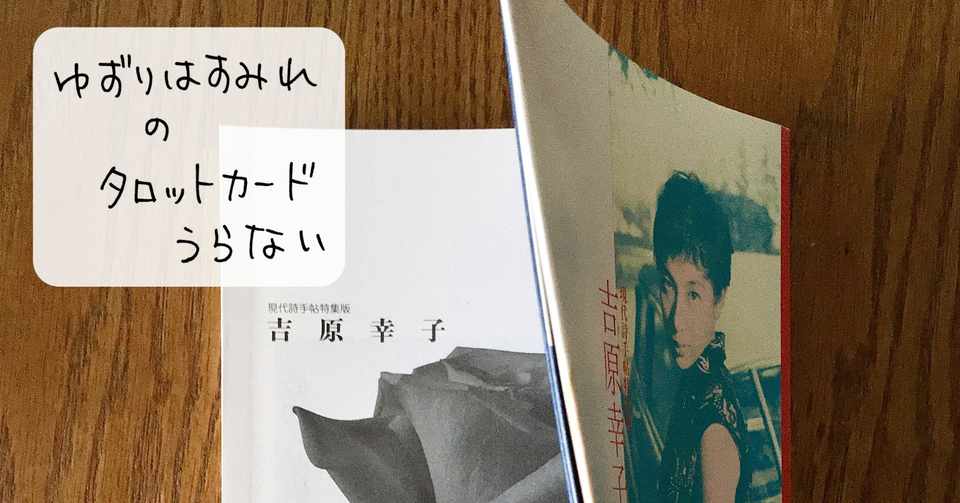 ゆずりはすみれ
の
タロットカード
うらない
現代詩手帖特集版
吉原幸子
現代詩手帖
吉原幸子